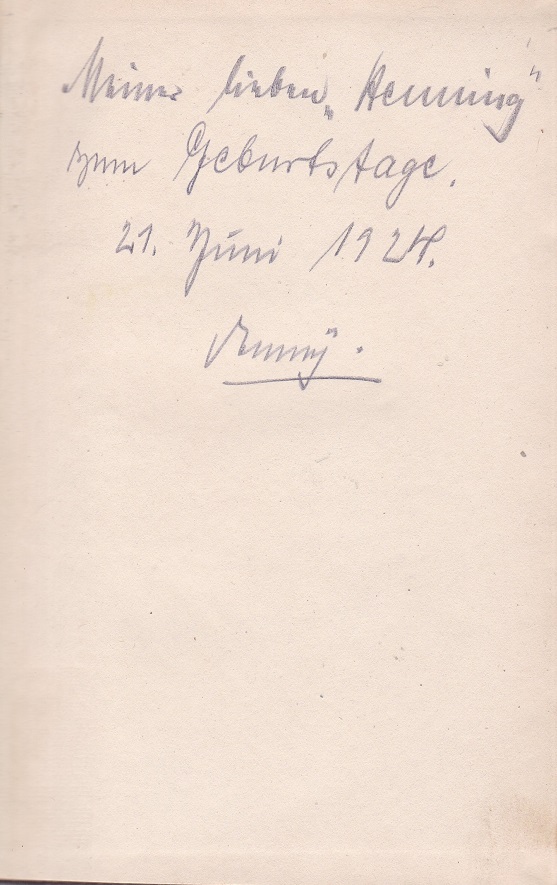 Meiner lieben „Henning“
zum Geburtstage.
21. Juni 1924.